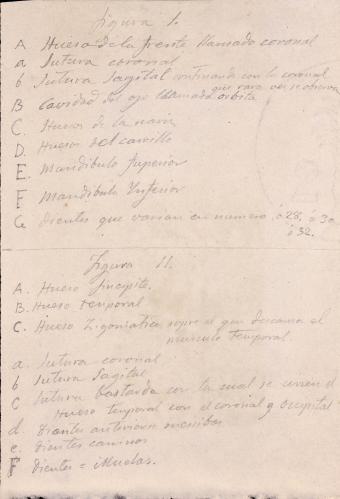 Figura 1.
A Hueso de la frente llamado coronal
a Sutura coronal
b Sutura Sagital continuando con la coronal
que rara vez se observa
B Cavidad del ojo llamada orbita
C. Huesos de la nariz
D. Huesos del carrillo
E. Mandibula Superior
F Mandibula Inferior
G Dientes que varian en numero, ó 28, ó 30
ó 32.
Figura 11.
A. Hueso Sincipite.
B. Hueso temporal
C. Hueso Zigomatico sopre el que descansa el
musculo temporal.
a. Sutura coronal
b Sutura Sagital
C Sutura bastarda con la cual se unen el
Hueso temporal con el coronal y occipital
d. Dientes anteriores incisibos
e. Dientes caninos
F Dientes = Muelas.